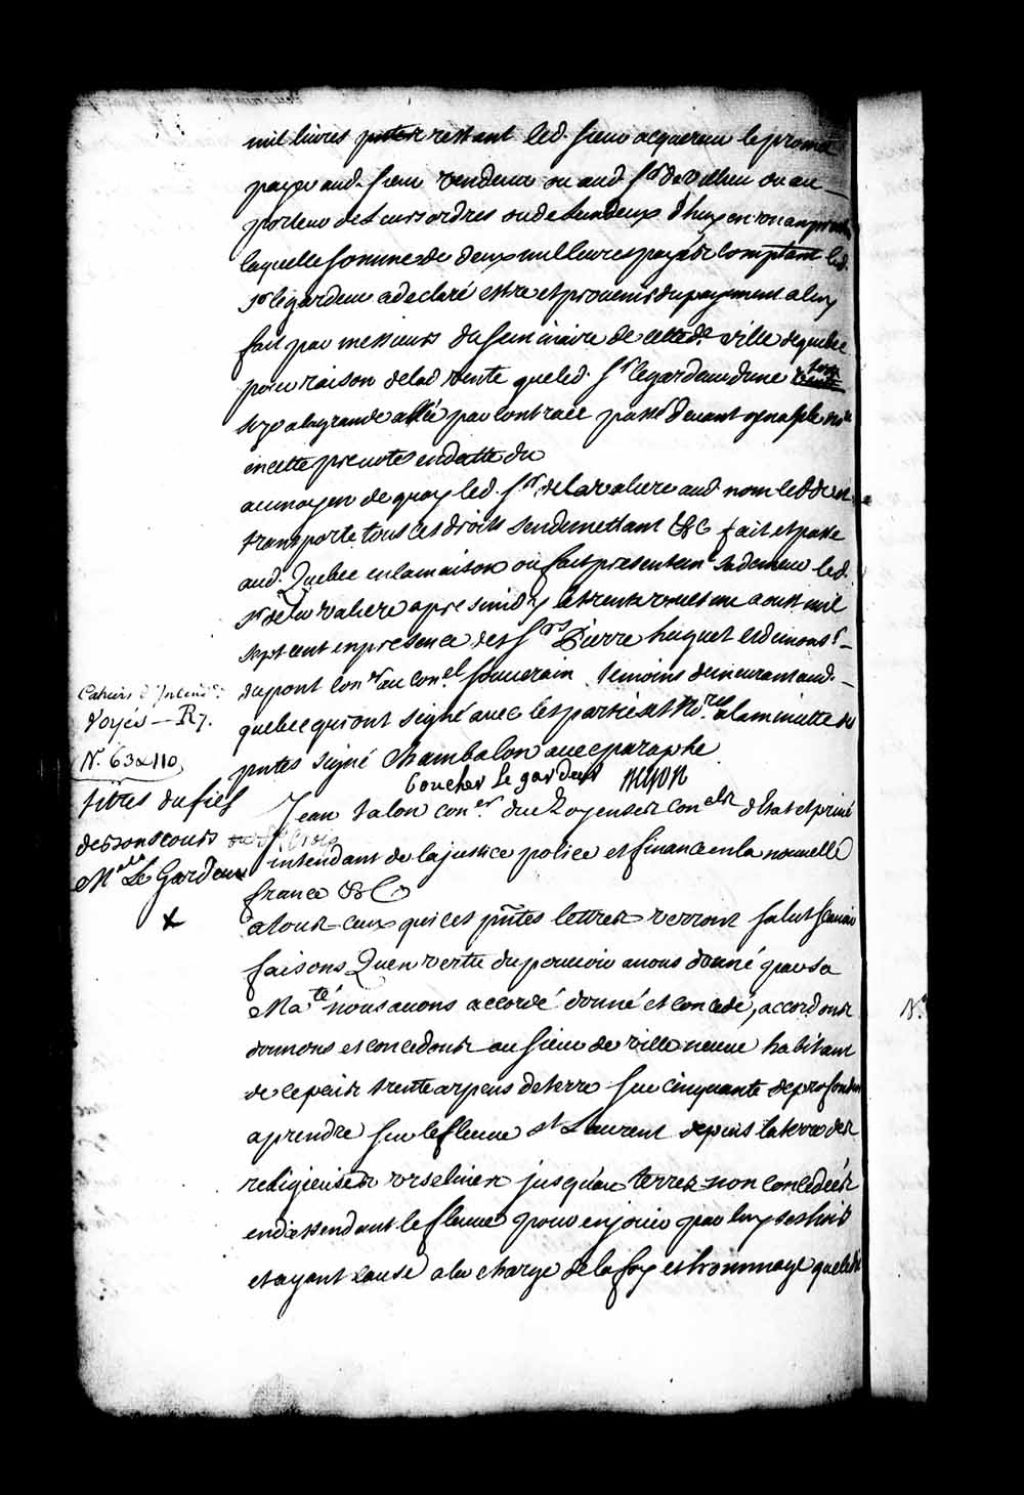 mil livres restant led. sieur acquereur le promet
payer aud. sieur vendeur ou aud. Sr de villieu ou au
porteur de leurs ordres ou de lun deux d'huy en un an
laquelle somme de deux mil livres payée comptant led.
Sr legardeur a declaré estre et provenir du payement a luy
fait par messieurs du seminaire de cette de ville de quebec
pour raison de lad vente que led. Sr legardeur dune terre
size a la grande allée par contract passé devant
en cette prevoté en datte du
au moyen de quoy led. Sr de la valiere aud. nom led
transporte tous ces droits sen demettant &c fait et passé
aud. Quebec en la maison ou fait presentemt sa demeure led.
Sr de la valiere apres midy le trente uniesme aoust mil
sept cent en presence des Srs Pierre huguet et
dupont conr au conel souverain temoins demeurant aud.
quebec qui ont signé avec les parties et Nore a la minutte des
pntes signé Chambalon avec paraphe
boucher Le gardeur
Cahiers d'Intend.ce
Voyés — R7.
N. 63 & 110
titres du fief
dessous cours
Mr Le Gardeur
X
Jean talon coner du Roy en ses conels d'estat et privé
intendant de la justice police et finance en la nouvelle
france &c
a tous ceux qui ces pntes lettres verront salut scavoir
faisons Quen vertu du pouvoir a nous donné par sa
Mate nous avons accordé donné et concedé, accordons
donnons et concedons au sieur de villeneuve habitant
de ce pais trente arpens de terre sur cinquante de profondeur
a prendre sur le fleuve st Laurent depuis la terre des
religieuses urselines jusqu'au terres non concedées
en dessendant le fleuve pour en jouir par luy ses hoirs
et ayant cause a la charge de la foy et hommage que led
N.o